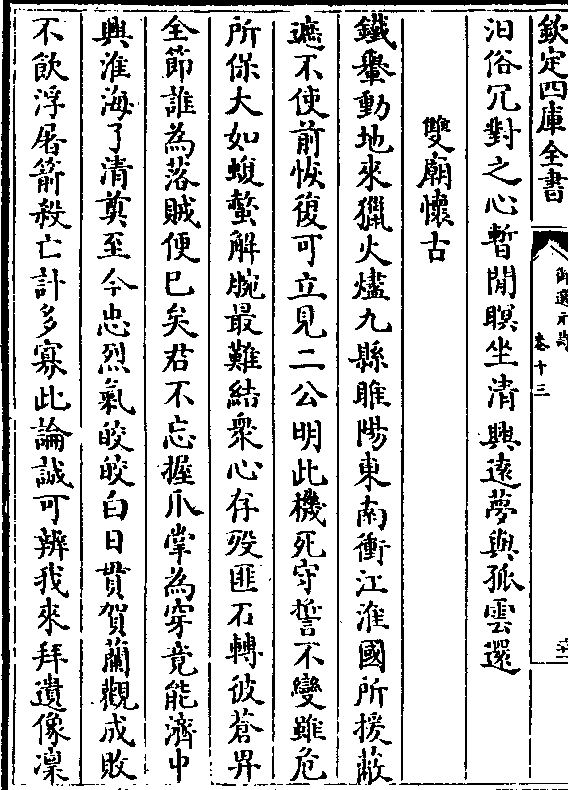 欽定四庫全書
御選元詩
卷十三
汩俗冗對之心暫閒瞑坐清興遠夢與孤雲還
雙廟懷古
鐵轝動地來獵火燼九縣睢陽東南衝江淮國所援蔽
遮不使前恢復可立見二公明此機死守誓不變雖危
所保大如蝮螫解腕最難結衆心存歿匪石轉彼蒼畀
全節誰為落賊便巳矣君不忘握爪掌為穿竟能濟中
興淮海了清奠至今忠烈氣皎皎白日貫賀蘭觀成敗
不飲浮屠箭殺亡計多寡此論誠可辨我來拜遺像凜